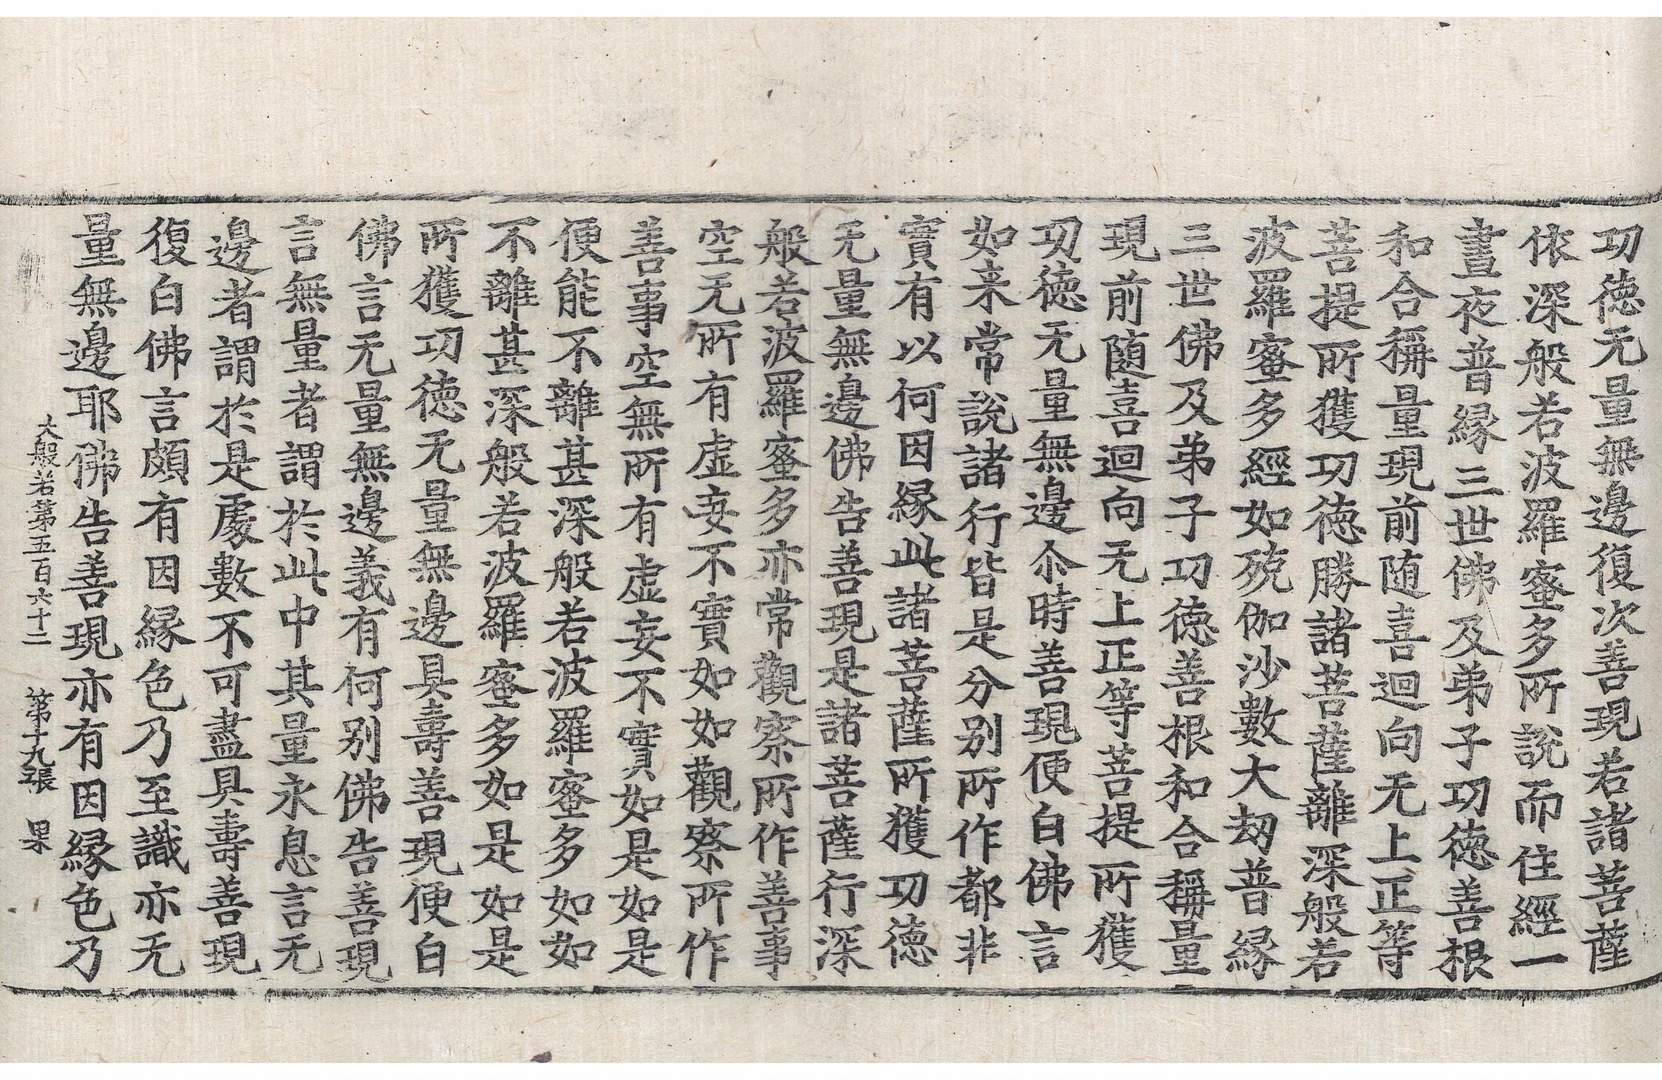 功德无量無邊復次善現若諸菩薩
依深般若波羅蜜多所說而住經一
晝夜普緣三世佛及弟子功德善根
和合稱量現前随喜迴向无上正等
菩提所獲功德勝諸菩薩離深般若
波羅蜜多經如殑伽沙數大劫普緣
三世佛及弟子功德善根和合稱量
現前随喜迴向无上正等菩提所獲
功德无量無邊尒時善現便白佛言
如来常說諸行皆是分別所作都非
實有以何因緣此諸菩薩所獲功德
无量無邊佛告善現是諸菩薩行深
般若波羅蜜多亦常觀察所作善事
空无所有虚妄不實如如觀察所作
善事空無所有虚妄不實如是如是
便能不離甚深般若波羅蜜多如如
不離甚深般若波羅蜜多如是如是
所獲功德无量無邊具壽善現便白
佛言无量無邊義有何別佛告善現
言無量者謂於此中其量永息言无
邊者謂於是處數不可盡具壽善現
復白佛言頗有因緣色乃至識亦无
量無邊耶佛告善現亦有因緣色乃
大般若第五百六十二　第十九張　果